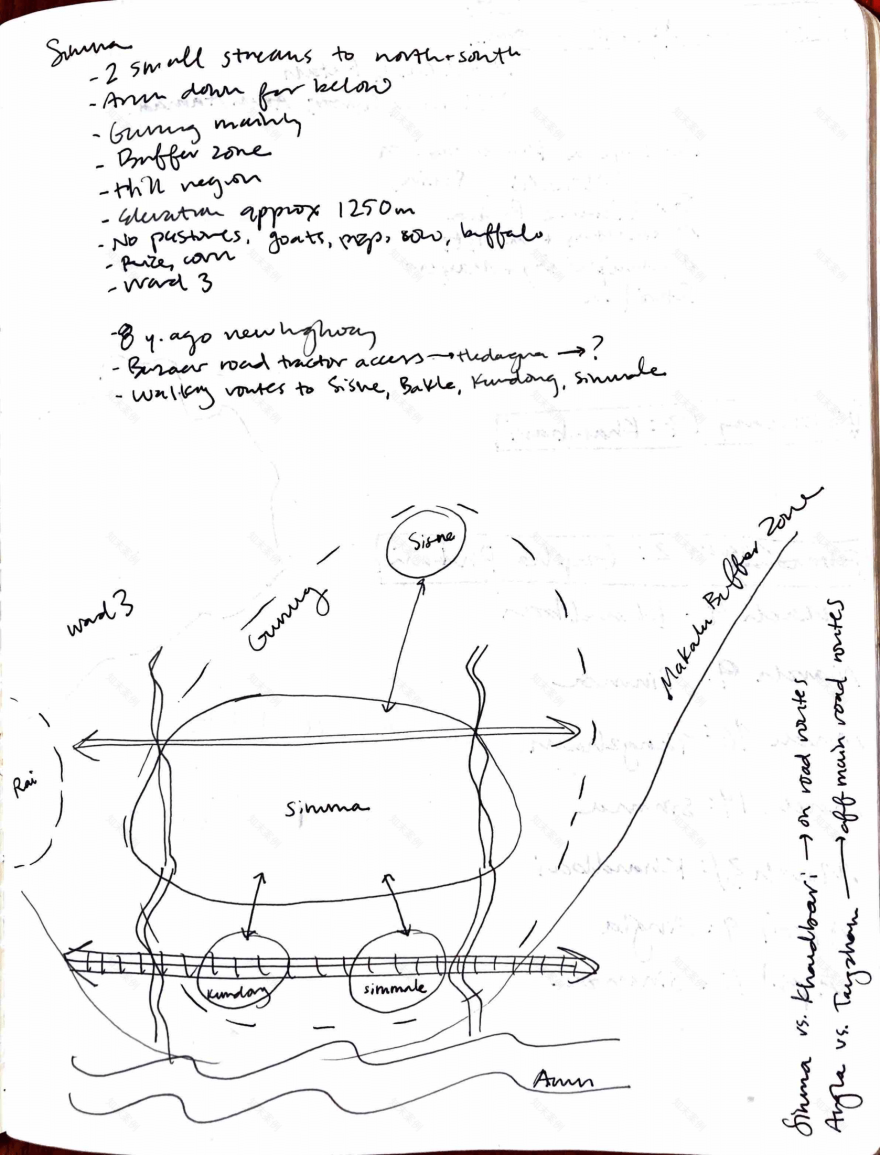 Simma
- 2 small streams to north + south
- Arun down far below
- Gurung mainly
- Buffer zone
- Hill region
- Elevation approx 1250m
- No pastures, goats, pigs, sow, buffalo
- Rice, corn
- Ward 3
- 8 y. ago new highway
- Bazaar road tractor access → Hedagna → ?
- Walking routes to Sisne, Bakle, Kundong, Simmale
Sisne
Makalu Buffer Zone
Gurung
ward 3
Rai
Simma
Kundong
simmale
Arun
Simma vs. Khandbari → on road routes
Angla vs. Tamgkham → off main road routes